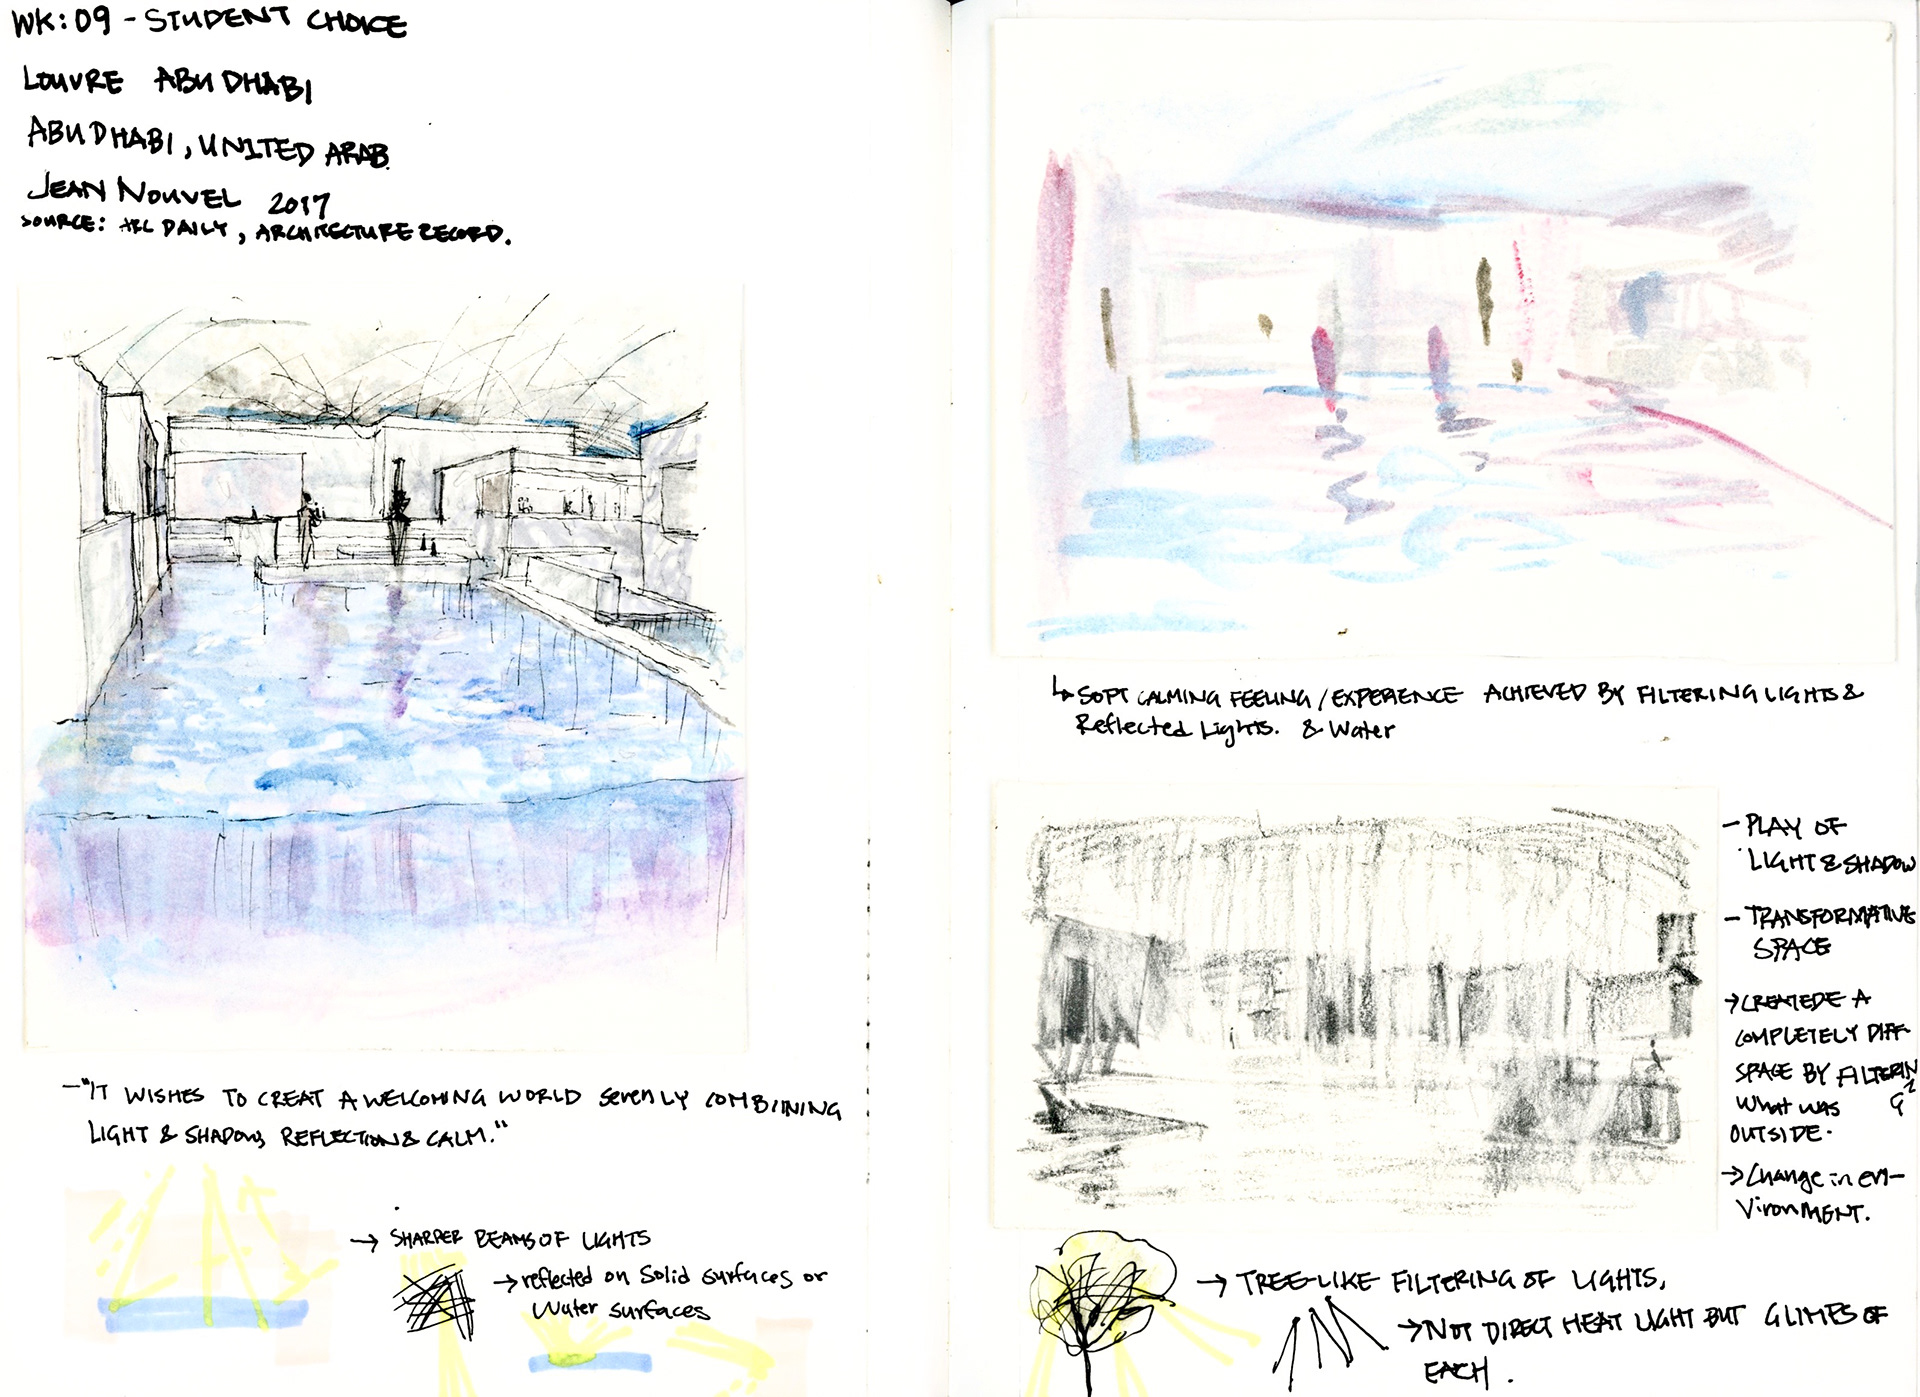 WK:09 - STUDENT CHOICE
LOUVRE ABU DHABI
ABU DHABI, UNITED ARAB
JEAN NOUVEL 2017
SOURCE: ARC DAILY, ARCHITECTURE RECORD.
-"IT WISHES TO CREAT A WELCOMING WORLD serenLY COMBINING
LIGHT & SHADOW, REFLECTION & CALM."
→ SHARPER BEAMS OF LIGHTS
→ reflected on Solid surfaces or
Water surfaces
↳ SOFT CALMING FEELING / EXPERIENCE ACHIEVED BY FILTERING LIGHTS &
Reflected Lights. & Water
- PLAY OF
LIGHT & SHADOW
- TRANSFORMATIVE
SPACE
→ CREATEDE A
COMPLETELY DIFF
SPACE BY FILTERIN
What was G
OUTSIDE.
→ Change in en-
VironMENT.
→ TREE-LIKE FILTERING OF LIGHTS,
→ NOT DIRECT HEAT LIGHT BUT GLIMES OF
EACH.